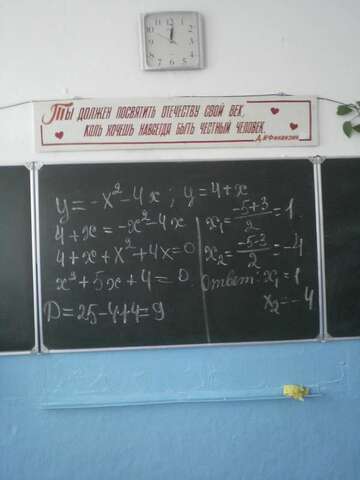 Ты должен посвятить отечеству свой век,
коль хочешь навсегда быть честный человек.
Д.И.Фонвизин
y = -x² - 4x ; y = 4 + x
4 + x = -x² - 4x
4 + x + x² + 4x = 0
x² + 5x + 4 = 0
D = 25 - 4·1·4 = 9
x₁ = (-5+3)/2 = 1
x₂ = (-5-3)/2 = -4
Ответ: x₁ = 1
x₂ = -4